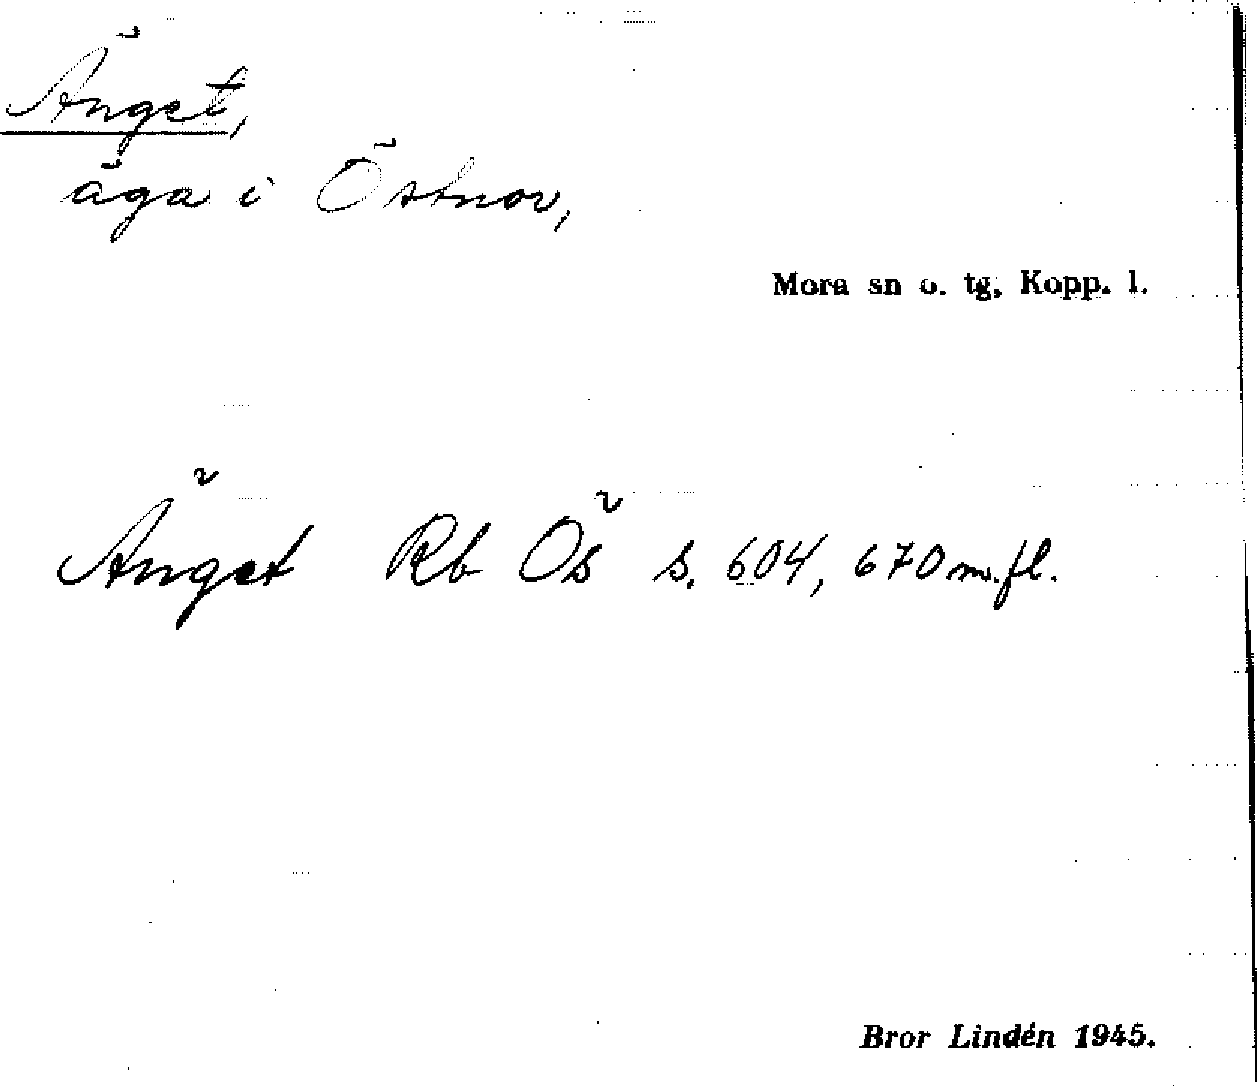 Änget,
äga i Östnor,
Mora sn o. tg, Kopp. l.
Änget Rb Ös s. 604, 670 m. fl.
Bror Lindén 1945.